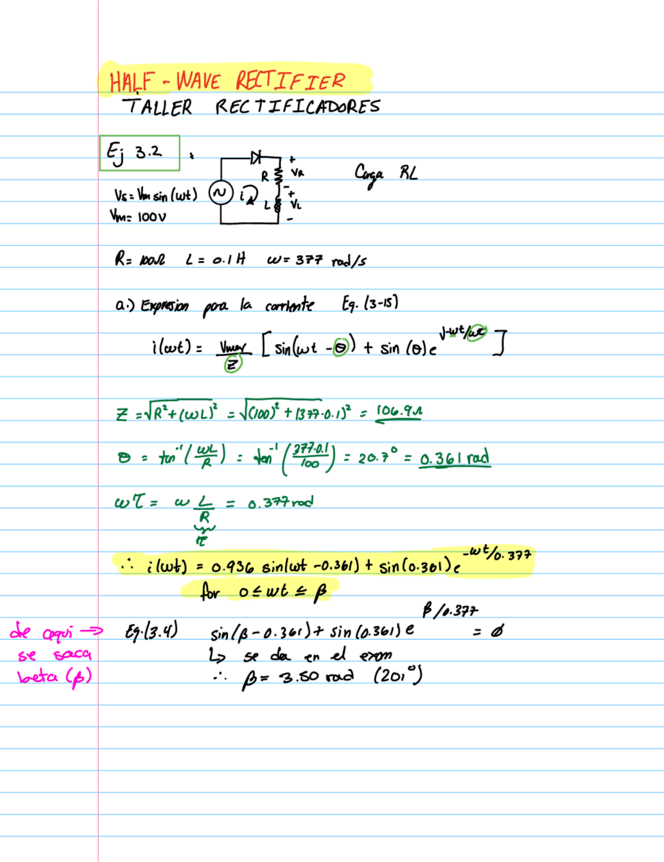 HALF - WAVE RECTIFIER
TALLER RECTIFICADORES
Ej 3.2
Vs = Vm sin(ωt)
Vm = 100V
R
+
VR
-
i
L
+
VL
-
Carga RL
R = 100Ω L = 0.1 H ω = 377 rad/s
a.) Expresion para la corriente Eq. (3-15)
i(ωt) = Vmax/Z [sin(ωt - θ) + sin(θ)e^(-ωt/ωτ)]
Z = √R² + (ωL)² = √(100)² + (377·0.1)² = 106.9Ω
θ = tan⁻¹(ωL/R) = tan⁻¹(377·0.1/100) = 20.7° = 0.361 rad
ωτ = ω L/R = 0.377 rad
τ
∴ i(ωt) = 0.936 sin(ωt - 0.361) + sin(0.361)e^(-ωt/0.377)
for 0 ≤ ωt ≤ β
de aqui →
se saca
beta (β)
Eq.(3.4) sin(β - 0.361) + sin(0.361)e^(β/0.377) = ø
↳ se da en el exam
∴ β = 3.50 rad (201°)